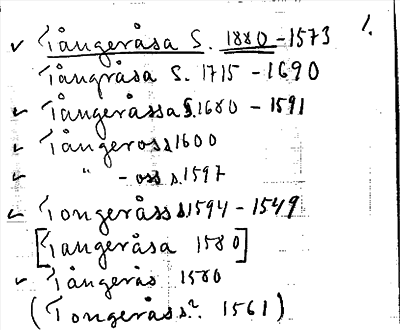 ✓ Tångeråsa S. 1880-1573 1.
Tångråsa S. 1715-1690
✓ Tångeråssa S. 1680 - 1591
✓ Tångeross 1600
✓ " -oss s. 1597
✓ Tongeråss s 1594-1549
[Tangeråsa 1580]
✓ Tångerås 1580
(Tongeråss? 1561)